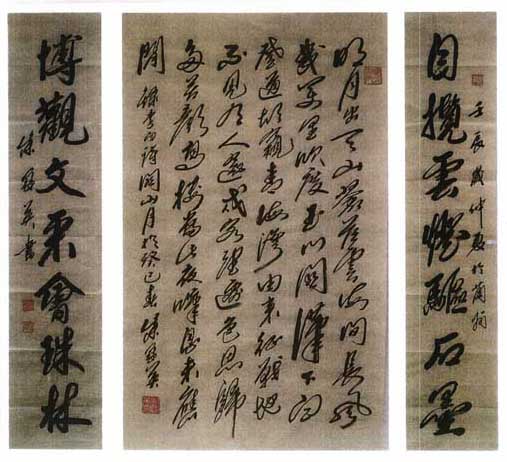 目攬雲煙驅石墨
壬辰歲仲夏於蘭
明月出天山蒼茫雲海間長風
幾萬里吹度玉門關漢下白
登道胡窺青海灣由來征戰地
不見有人還戍客望邊色思歸
多苦顏高樓當此夜嘆息未應
閑 錄李白詩關山月於癸巳春 英
博觀文采會珠林
英書